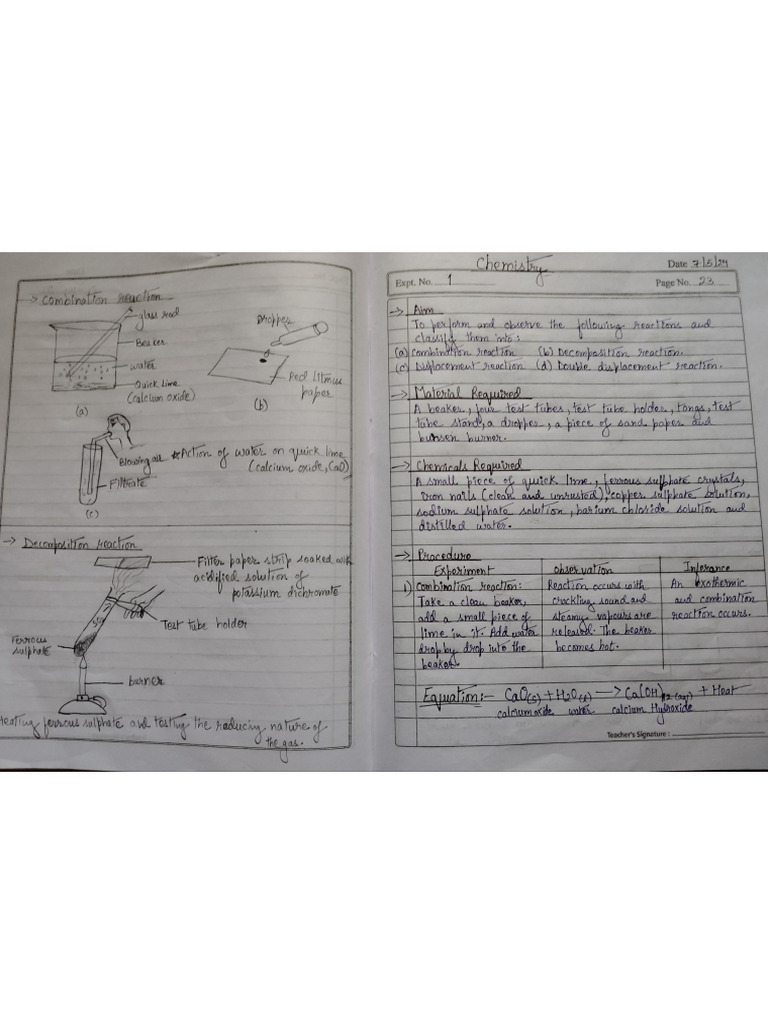 -> Combination reaction
glass rod
Beaker
water
Quick lime
(calcium oxide)
(a)
Dropper
Red litmus
paper
(b)
Blowing air
Filtrate
(c)
★Action of water on quick lime
(calcium oxide, CaO)
-> Decomposition reaction
Filter paper strip soaked with
acidified solution of
potassium dichromate
Test tube holder
Ferrous
sulphate
burner
Heating ferrous sulphate and testing the reducing nature of
the gas.
Chemistry
Date 7/5/24
Expt. No. 1
Page No. 23
-> Aim
To perform and observe the following reactions and
classify them into:
(a) combination reaction (b) Decomposition reaction.
(c) Displacement reaction (d) Double displacement reaction.
-> Material Required
A beaker, four test tubes, test tube holder, tongs, test
tube stand, a dropper, a piece of sand paper and
bunsen burner.
-> Chemicals Required
A small piece of quick lime, ferrous sulphate crystals,
iron nails (clean and unrusted), copper sulphate solution,
sodium sulphate solution, barium chloride solution and
distilled water.
-> Procedure
Experiment Observation Inferance
1) Combination reaction: Reaction occurs with An exothermic
Take a clean beaker, crackling sound and and combination
add a small piece of steamy vapours are reaction occurs.
lime in it. Add water released. The beaker
drop by drop into the becomes hot.
beaker.
Equation:- CaO(s) + H2O(l) -> Ca(OH)2 (aq) + Heat
calcium oxide water calcium Hydroxide
Teacher's Signature :